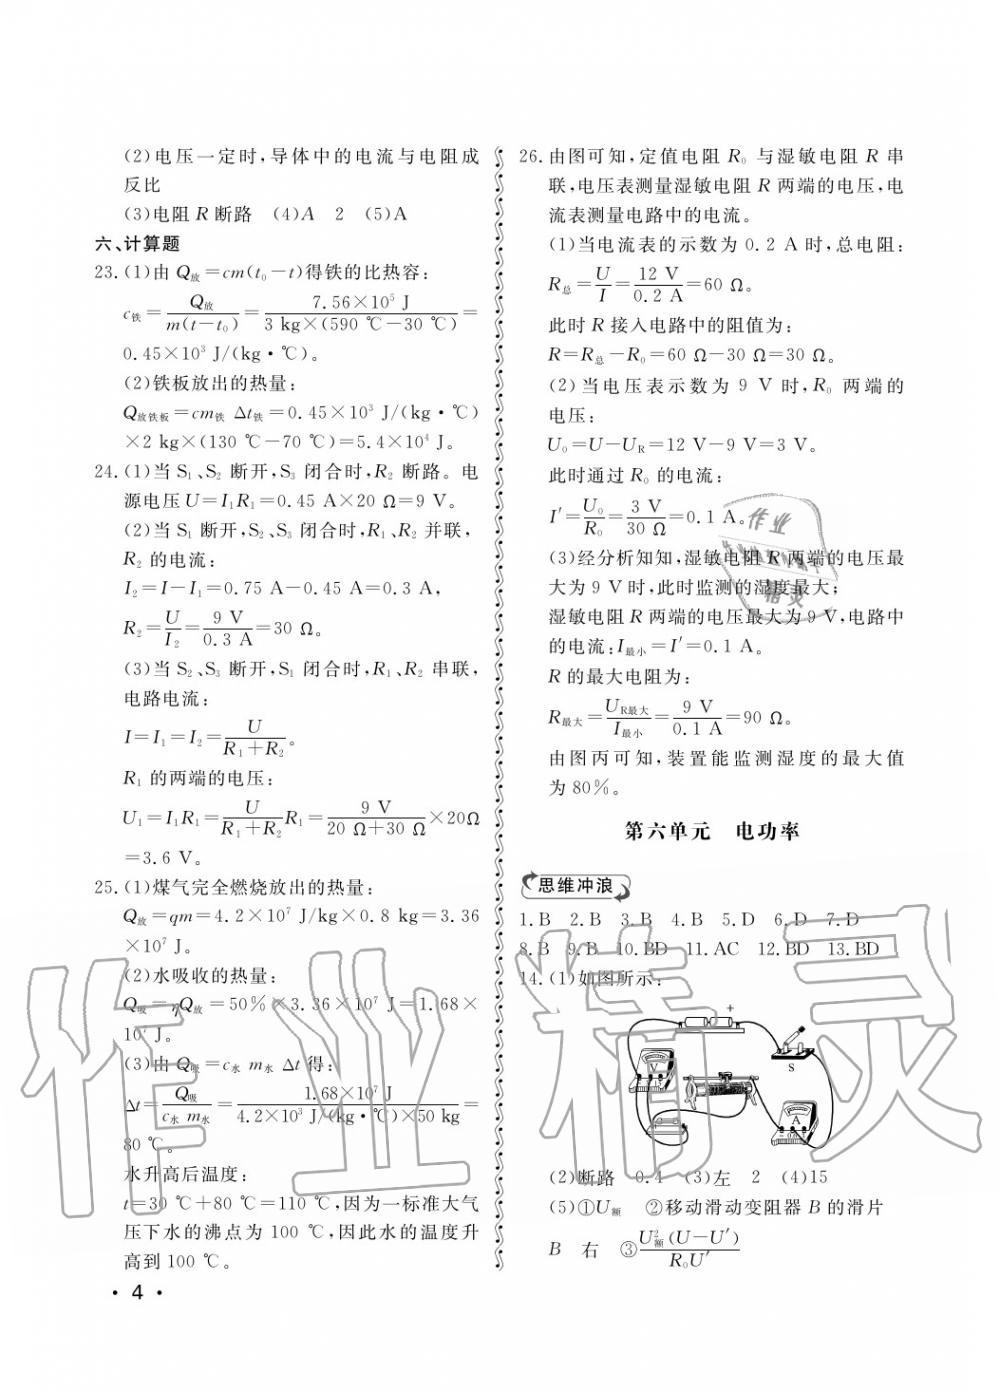 (2)电压一定时,导体中的电流与电阻成
反比
(3)电阻 R 断路 (4)A 2 (5)A
六、计算题
23.(1)由 Q放=cm(t₀-t)得铁的比热容:
c铁=Q放/m(t-t₀)=7.56×10⁵ J/3 kg×(590 ℃-30 ℃)=
0.45×10³ J/(kg·℃)。
(2)铁板放出的热量:
Q放铁板=cm铁 Δt铁=0.45×10³ J/(kg·℃)
×2 kg×(130 ℃-70 ℃)=5.4×10⁴ J。
24.(1)当 S₁、S₂ 断开,S₃ 闭合时,R₂ 断路。电
源电压 U=I₁R₁=0.45 A×20 Ω=9 V。
(2)当 S₁ 断开,S₂、S₃ 闭合时,R₁、R₂ 并联,
R₂ 的电流:
I₂=I-I₁=0.75 A-0.45 A=0.3 A,
R₂=U/I₂=9 V/0.3 A=30 Ω。
(3)当 S₂、S₃ 断开,S₁ 闭合时,R₁、R₂ 串联,
电路电流:
I=I₁=I₂=U/R₁+R₂。
R₁ 的两端的电压:
U₁=I₁R₁=U/R₁+R₂ R₁=9 V/20 Ω+30 Ω×20Ω
=3.6 V。
25.(1)煤气完全燃烧放出的热量:
Q放=qm=4.2×10⁷ J/kg×0.8 kg=3.36
×10⁷ J。
(2)水吸收的热量:
Q吸=ηQ放=50%×3.36×10⁷ J=1.68×
10⁷ J。
(3)由 Q吸=c水 m水 Δt 得:
Δt=Q吸/c水 m水=1.68×10⁷ J/4.2×10³ J/(kg·℃)×50 kg=
80 ℃。
水升高后温度:
t=30 ℃+80 ℃=110 ℃,因为一标准大气
压下水的沸点为 100 ℃,因此水的温度升
高到 100 ℃。
· 4 ·
26.由图可知,定值电阻 R₀ 与湿敏电阻 R 串
联,电压表测量湿敏电阻 R 两端的电压,电
流表测量电路中的电流。
(1)当电流表的示数为 0.2 A 时,总电阻:
R总=U/I=12 V/0.2 A=60 Ω。
此时 R 接入电路中的阻值为:
R=R总-R₀=60 Ω-30 Ω=30 Ω。
(2)当电压表示数为 9 V 时,R₀ 两端的
电压:
U₀=U-U_R=12 V-9 V=3 V。
此时通过 R₀ 的电流:
I′=U₀/R₀=3 V/30 Ω=0.1 A。
(3)经分析知知,湿敏电阻 R 两端的电压最
大为 9 V时,此时监测的湿度最大;
湿敏电阻 R 两端的电压最大为 9 V,电路中
的电流:I最小=I′=0.1 A。
R 的最大电阻为:
R最大=U_R最大/I最小=9 V/0.1 A=90 Ω。
由图丙可知,装置能监测湿度的最大值
为 80%。
第六单元 电功率
思维冲浪
1.B 2.B 3.B 4.B 5.D 6.D 7.D
8.B 9.B 10.BD 11.AC 12.BD 13.BD
14.(1)如图所示:
+
V
S
A
(2)断路 0.4 (3)左 2 (4)15
(5)①U额 ②移动滑动变阻器 B 的滑片
B 右 ③U²额(U-U′)/R₀U′
作业
精灵
作业精灵